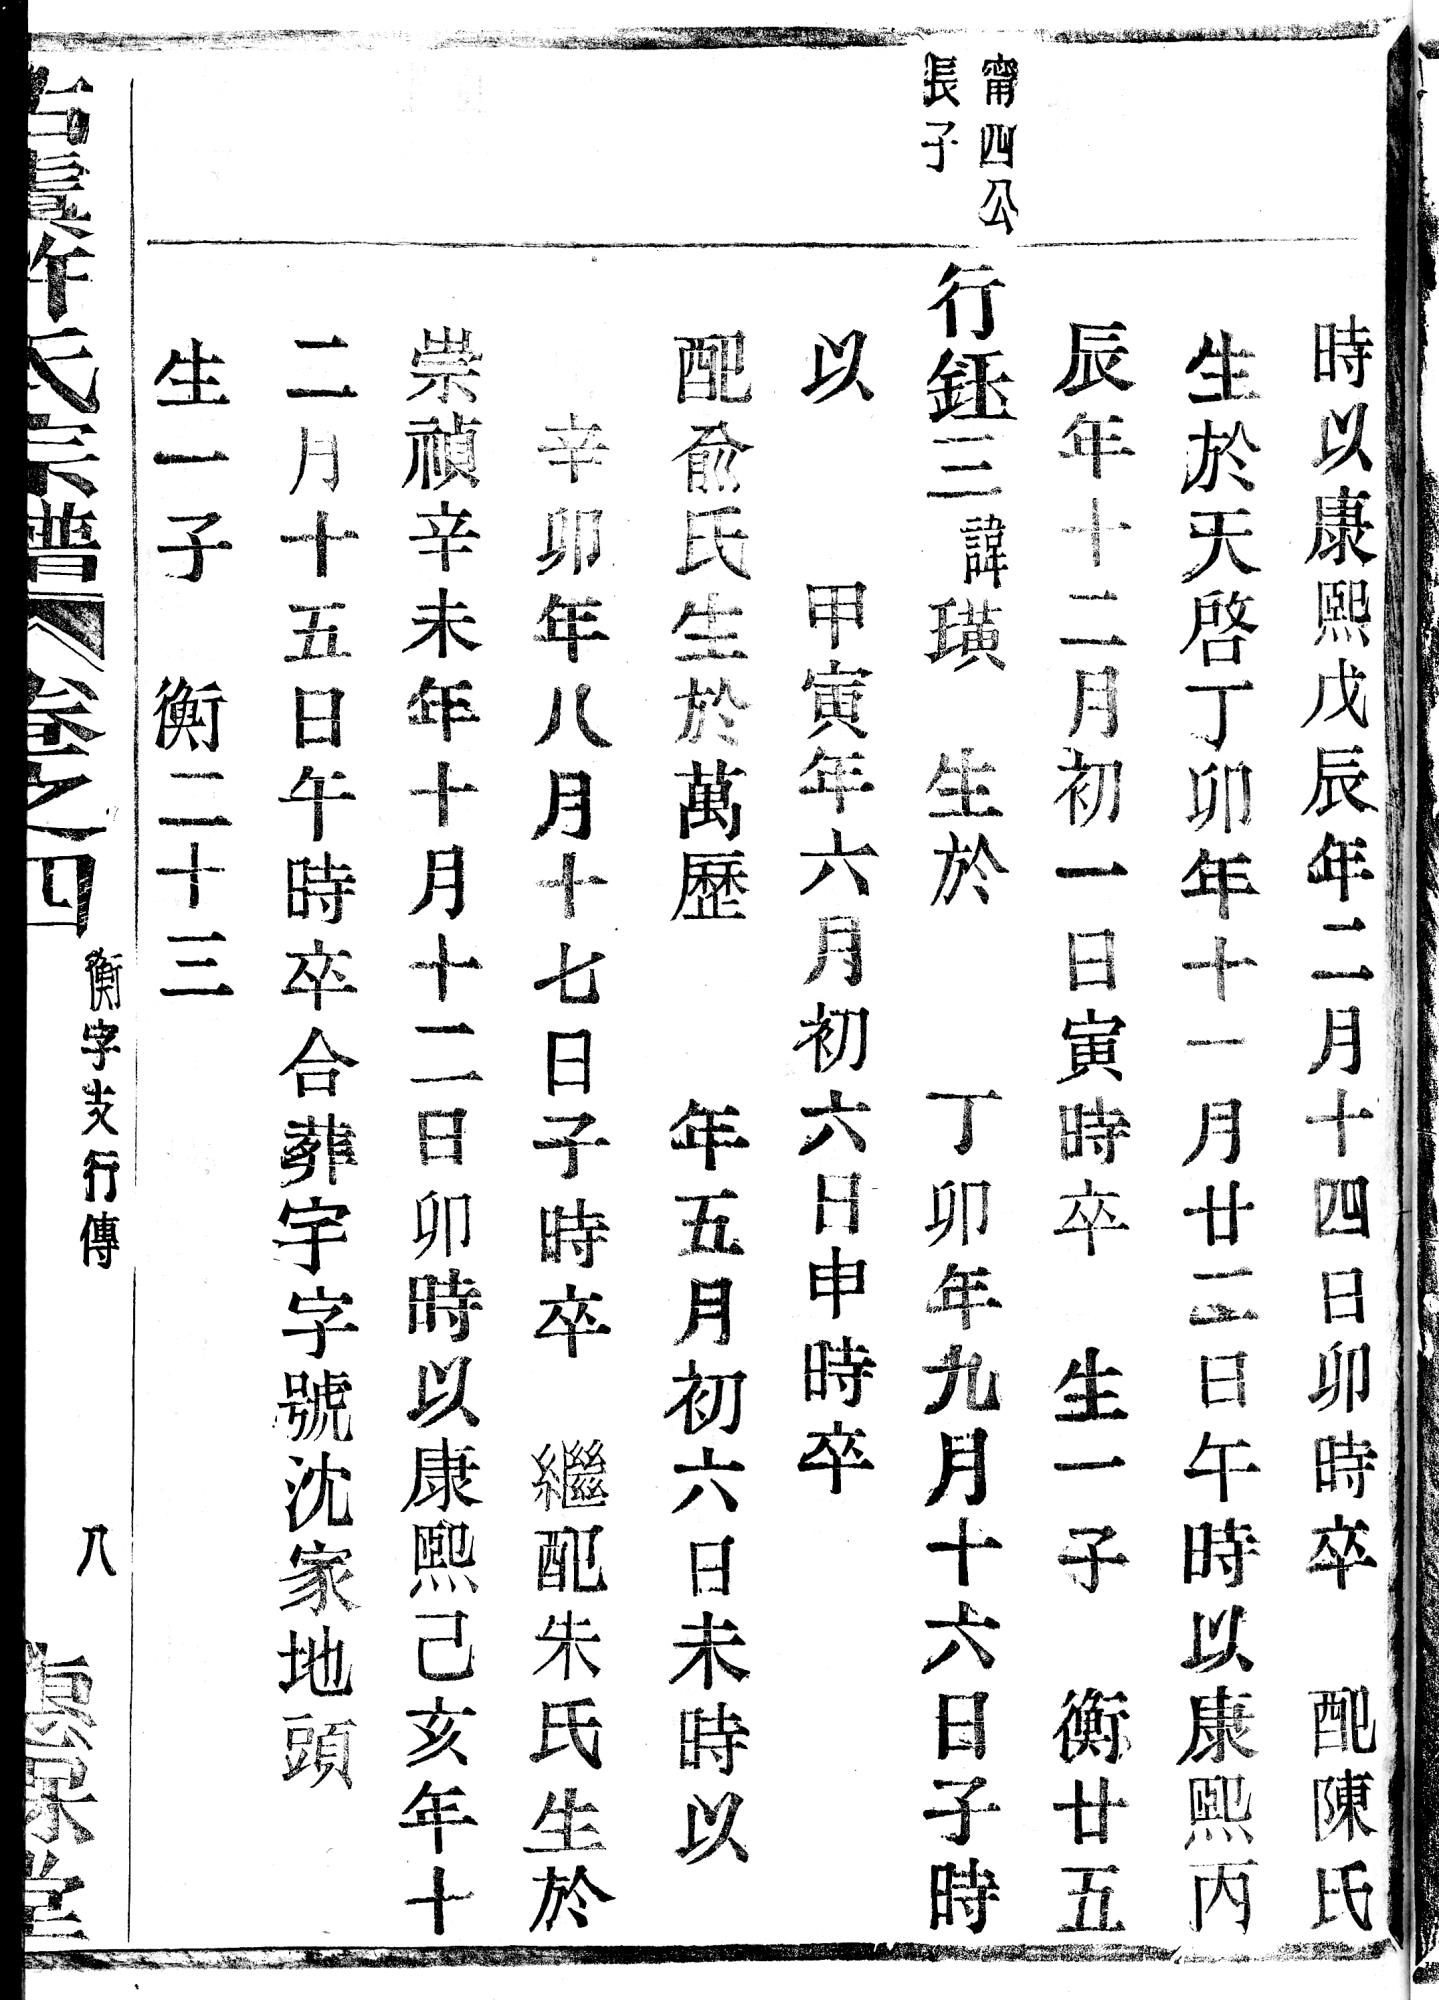 時以康熙戊辰年二月十四日卯時卒　配陳氏
生於天啓丁卯年十一月廿二日午時以康熙丙
辰年十二月初一日寅時卒　生一子　衡廿五
甯四公
長子
行鈺三諱璜　生於　　丁卯年九月十六日子時
以　　甲寅年六月初六日申時卒
配俞氏生於萬歷　　年五月初六日未時以
辛卯年八月十七日子時卒　繼配朱氏生於
崇禎辛未年十月十二日卯時以康熙己亥年十
二月十五日午時卒合葬宇字號沈家地頭
生一子　衡二十三
古虞許氏宗譜　卷之四　衡字支行傳　八　堂